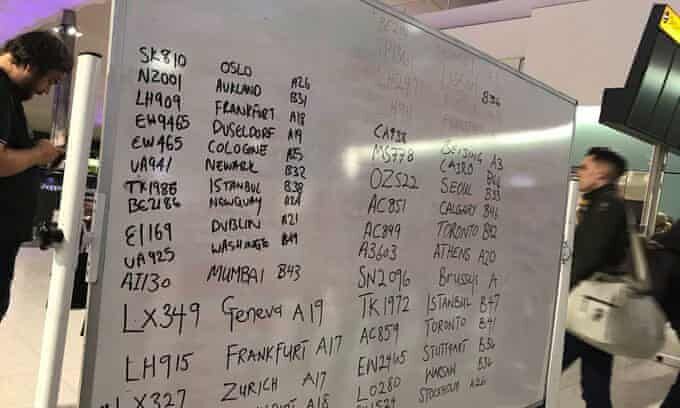 SK810 OSLO
NZ001 AUKLAND A26
LH909 FRANKFURT B31
EW9465 DUSELDORF A18
EW465 COLOGNE A19
UA941 NEWARK A25
TK1986 ISTANBUL B32
BE2186 NEWQUAY B38
A24
EI169 DUBLIN A21
UA925 WASHINGTE B49
AI130 MUMBAI B43
LX349 Geneva A19
LH915 FRANKFURT A17
LX327 ZURICH A17
A18
B36
CA938 BEIJING A3
MS778 CAIRO B44
OZ522 SEOUL B33
AC851 CALGARY B46
AC899 TORONTO B42
A3603 ATHENS A20
SN2096 Brussels A
TK1972 ISTANBUL B47
AC859 TORONTO B41
EW2465 STUTTGART B36
LO280 WARSAW B36
STOCKHOLM A26